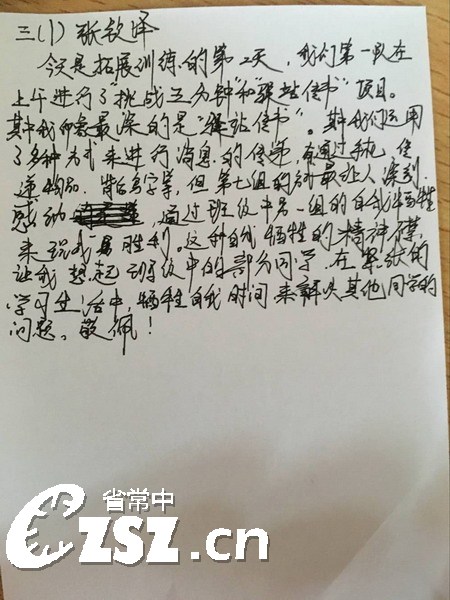 三(1) 张钦泽
今天是拓展训练的第2天，我们第一队在
上午进行了"挑战三分钟"和"驿站传书"项目。
其中我印象最深的是"驿站传书"。其中我们运用
了多种方式来进行消息的传递，有通过手机、传
递物品、背后写字等，但第七组的 最让人深刻、
感动 ，通过班级中另一组的自我牺牲
来 胜利。这种自我牺牲的精神
让我想起了班级中的部分同学，在紧张的
学习生活中，牺牲自我时间来解决其他同学的
问题。敬佩！
省常中
CZSZ.cn